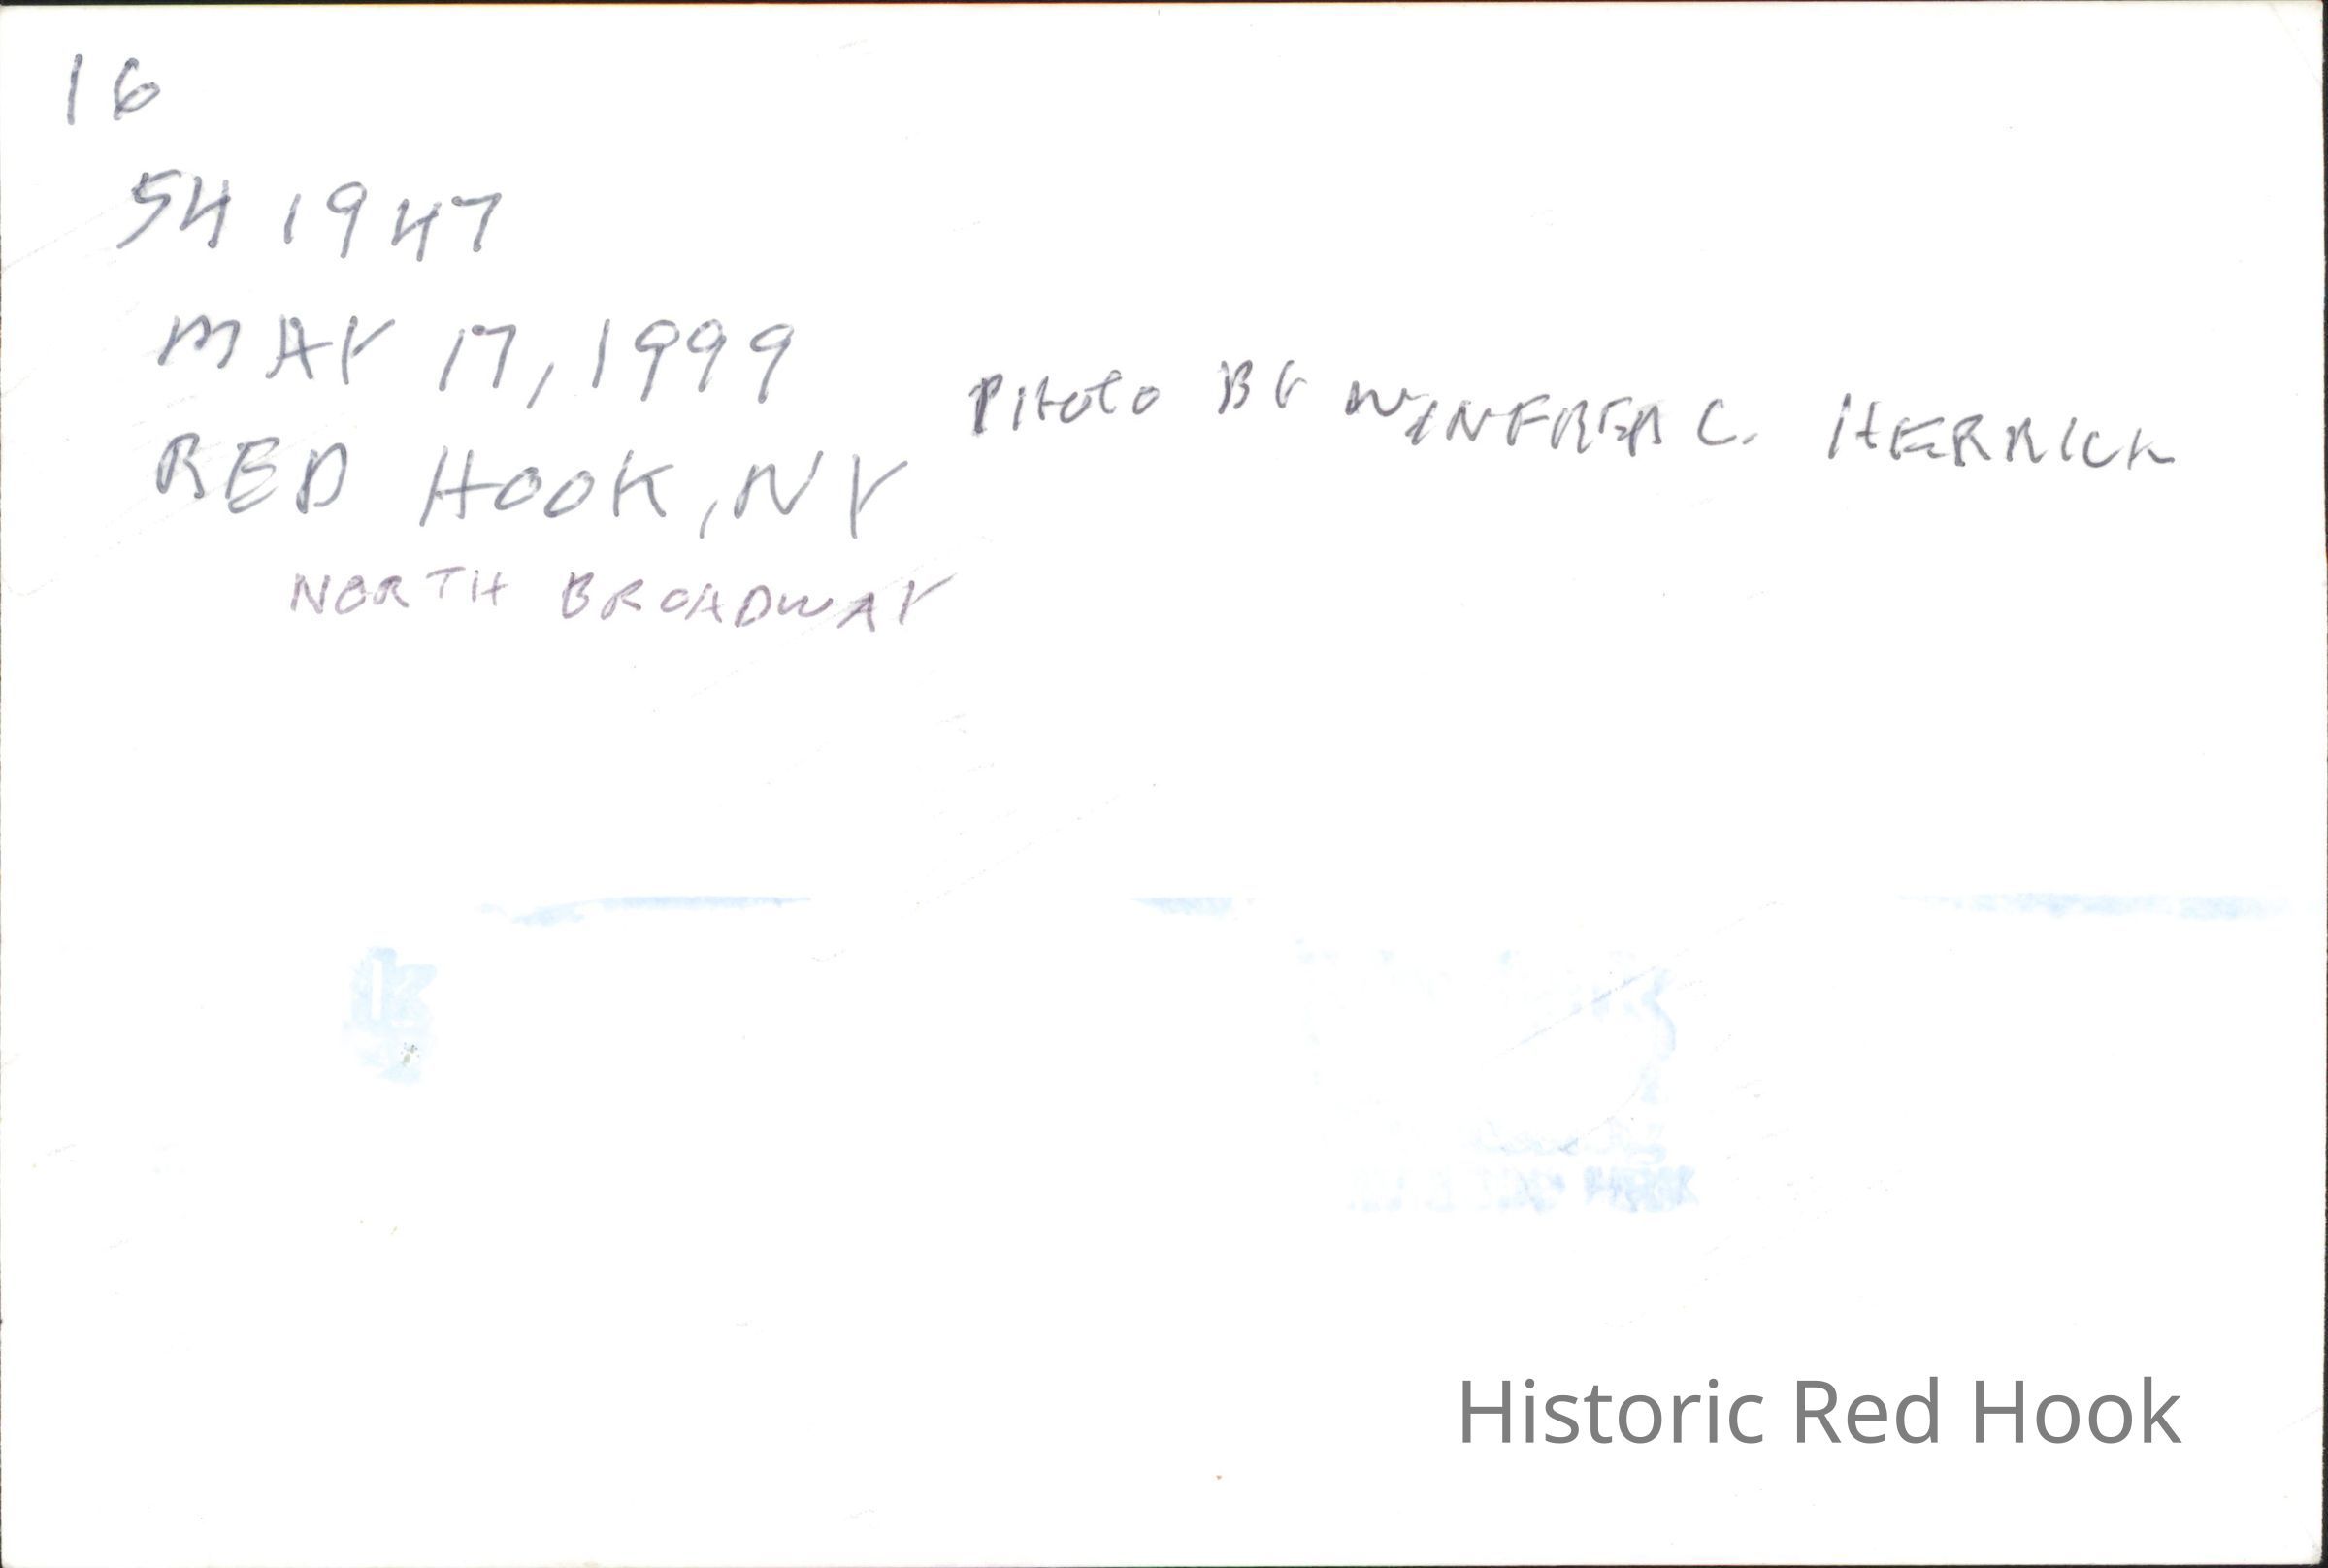 16
54 1947
MAY 17, 1999
PHOTO BY WINFRED C. HERRICK
RED HOOK, NY
NORTH BROADWAY
Historic Red Hook